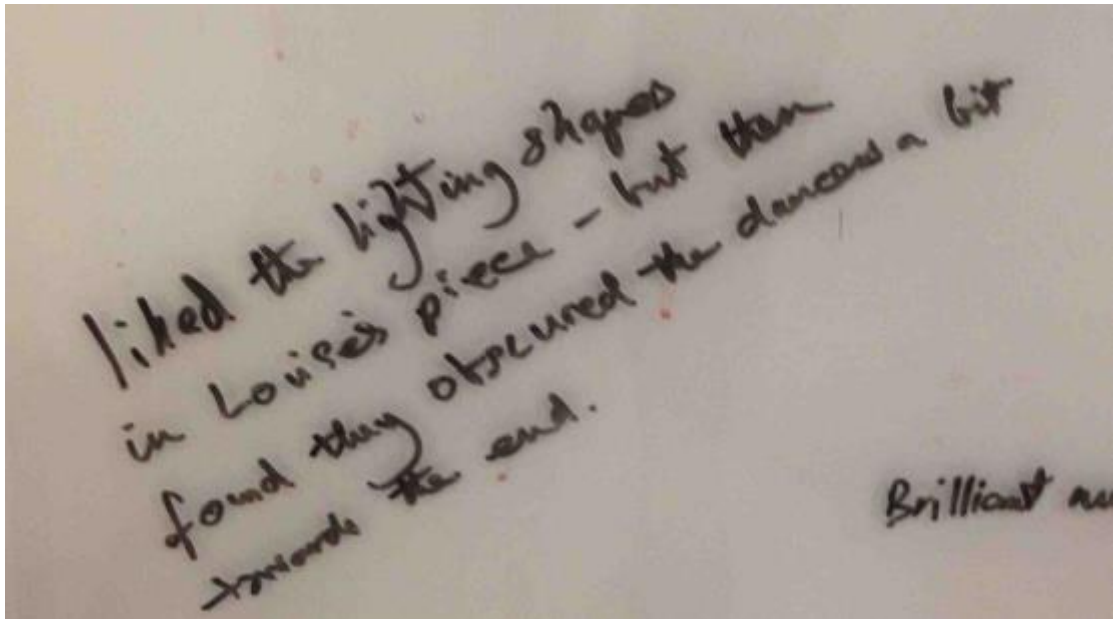 liked the lighting shapes
in Louise's piece - but then
found they obscured the dancers a bit
towards the end.
Brilliant